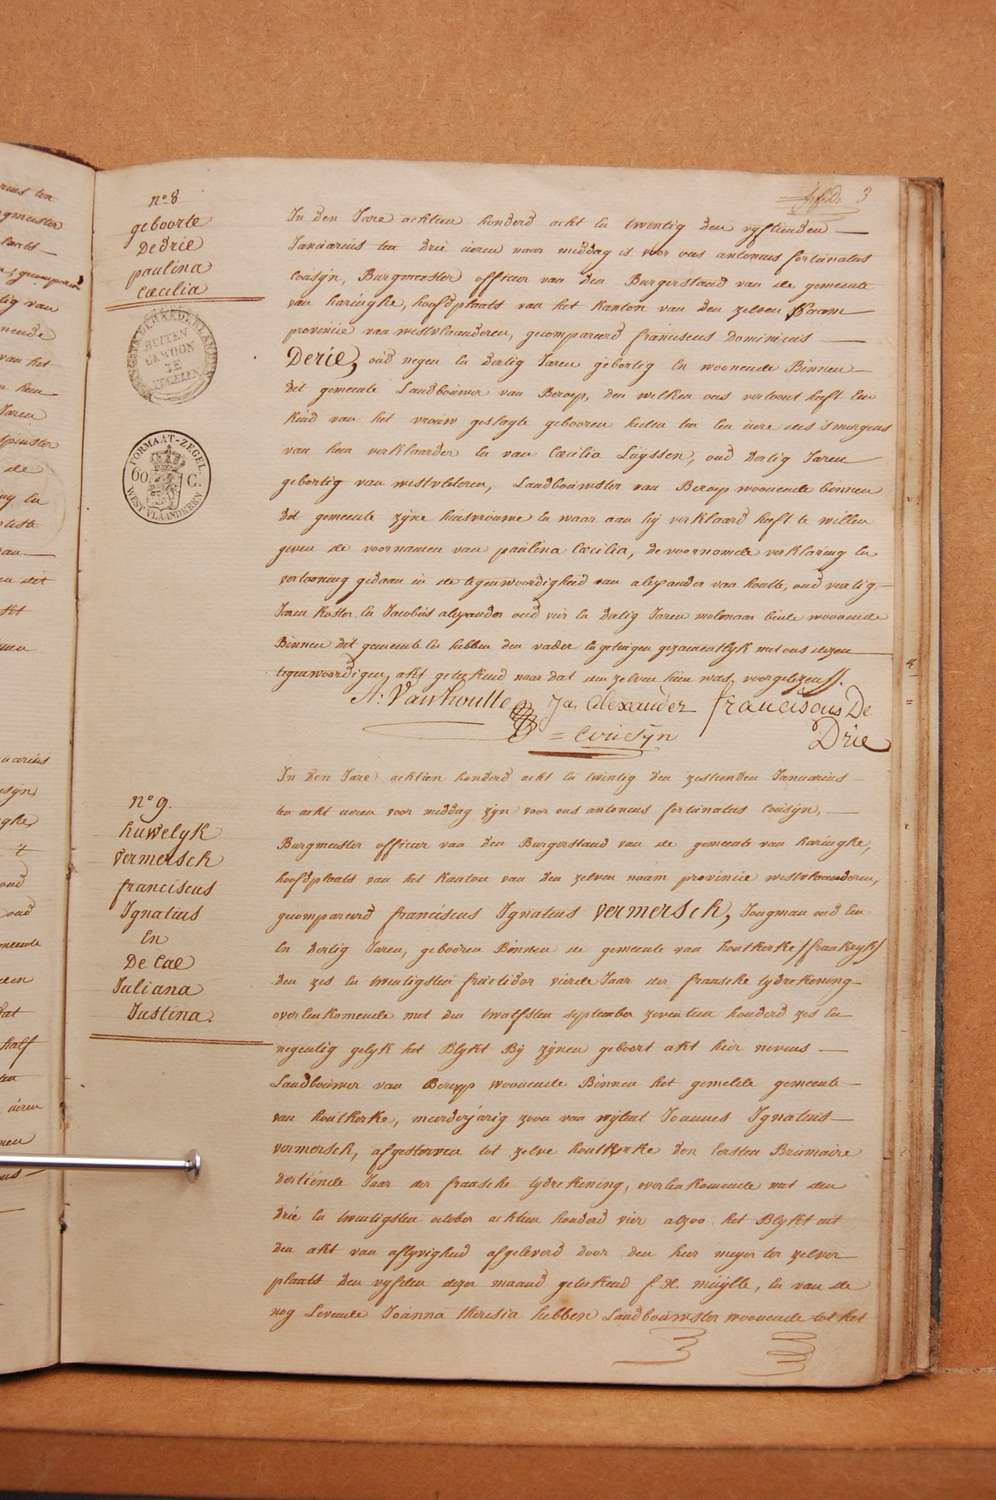 3
n.o 8
geboorte
Dedrie
paulina
Cæcilia
BUITEN
GEWOON
TE
ZEGELEN
FORMAAT-ZEGEL.
60 C.
WEST VLAANDEREN
In den Jare achtien honderd acht en twintig den vyftienden
Januarius ten drie uren naer middag is voor ons antonius fortunatus
Cousÿn, Burgmeester officier van den Burgerstand van de gemeente
van haringhe, hoofdplaats van het kanton van den zelven Naam
provincie van westvlaanderen, gecompareerd franciscus Dominicus
Derie, oud negen en dertig Jaren geboortig en woonende Binnen
dit gemeente Landbouwer van Beroep, den welken ons vertoont heeft een
kind van het vrouw geslagte gebooren heden ten een uere des s'morgens
van hem verklaarder en van Cæcilia Luyssen, oud dertig Jaren
geboortig van westvleteren, Landbouwster van Beroep woonende binnen
dit gemeente zÿne huisvrouwe en waar aan hy verklaard heeft te willen
geven de voornamen van paulina Cæcilia, de voornoemde verklaring en
vertooning gedaan in de tegenwoordigheid van alexander van houtte, oud veertig
Jaren koster en Jacobus alexander oud vier en dertig Jaren molenaar beide woonende
Binnen dit gemeente en hebben den vader en getuigen gezamentlyk met ons dezen
tegenwoordigen akt geteekend naar dat den zelven hun was voorgelezen.
A. Vanhoutte Ja, Alexander franciscus De
Drie
= Cousÿn
n.o 9.
huwelyk
Vermersch
franciscus
Ignatius
En
De Cae
Juliana
Justina.
In den Jare achtien honderd acht en twintig den zestienden Januarius
ten acht uren voor middag zÿn voor ons antonius fortunatus Cousÿn,
Burgmeester officier van den Burgerstand van de gemeente van haringhe,
hoofdplaats van het Kanton van den zelven naam provincie westvlaanderen,
gecompareerd franciscus Ignatius Vermersch, Jongman oud een
en dertig Jaren, gebooren Binnen de gemeente van houtkerke /frankryk/
den zes en twentigsten fructidor vierde Jaar der fransche tydrekening
overeenkomende met den twalfsten september zeventien honderd zes en
negentig gelÿk het Blÿkt By zÿnen geboort akt hier nevens
Landbouwer van Beroep woonende Binnen het gemelde gemeente
van houtkerke, meerderjarig zoon van wylent Joannes Ignatius
vermersch, afgestorven tot zelve houtkerke den Eersten Brumaire
dertiende Jaar der fransche tydrekening, overeenkomende met den
drie en twentigsten october achtien honderd vier alzoo het Blykt uit
den akt van aflyvigheid afgeleverd door den heer meyer ter zelver
plaats den vyfden dezer maand geteekend f. H. muÿlle, en van de
nog Levende Joanna theresia hebben Landbouwster woonende tot het